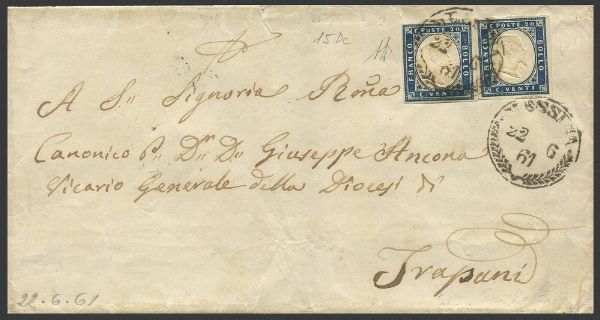 15 Dc
FRANCO C. POSTE 20 BOLLO C. VENTI
FRANCO C. POSTE 20 BOLLO C. VENTI
22
61
22 6
61
A S. Signoria Rma
Canonico P. Dn Dn Giuseppe Ancona
Vicario Generale della Diocesi di
Trapani
22-6-61